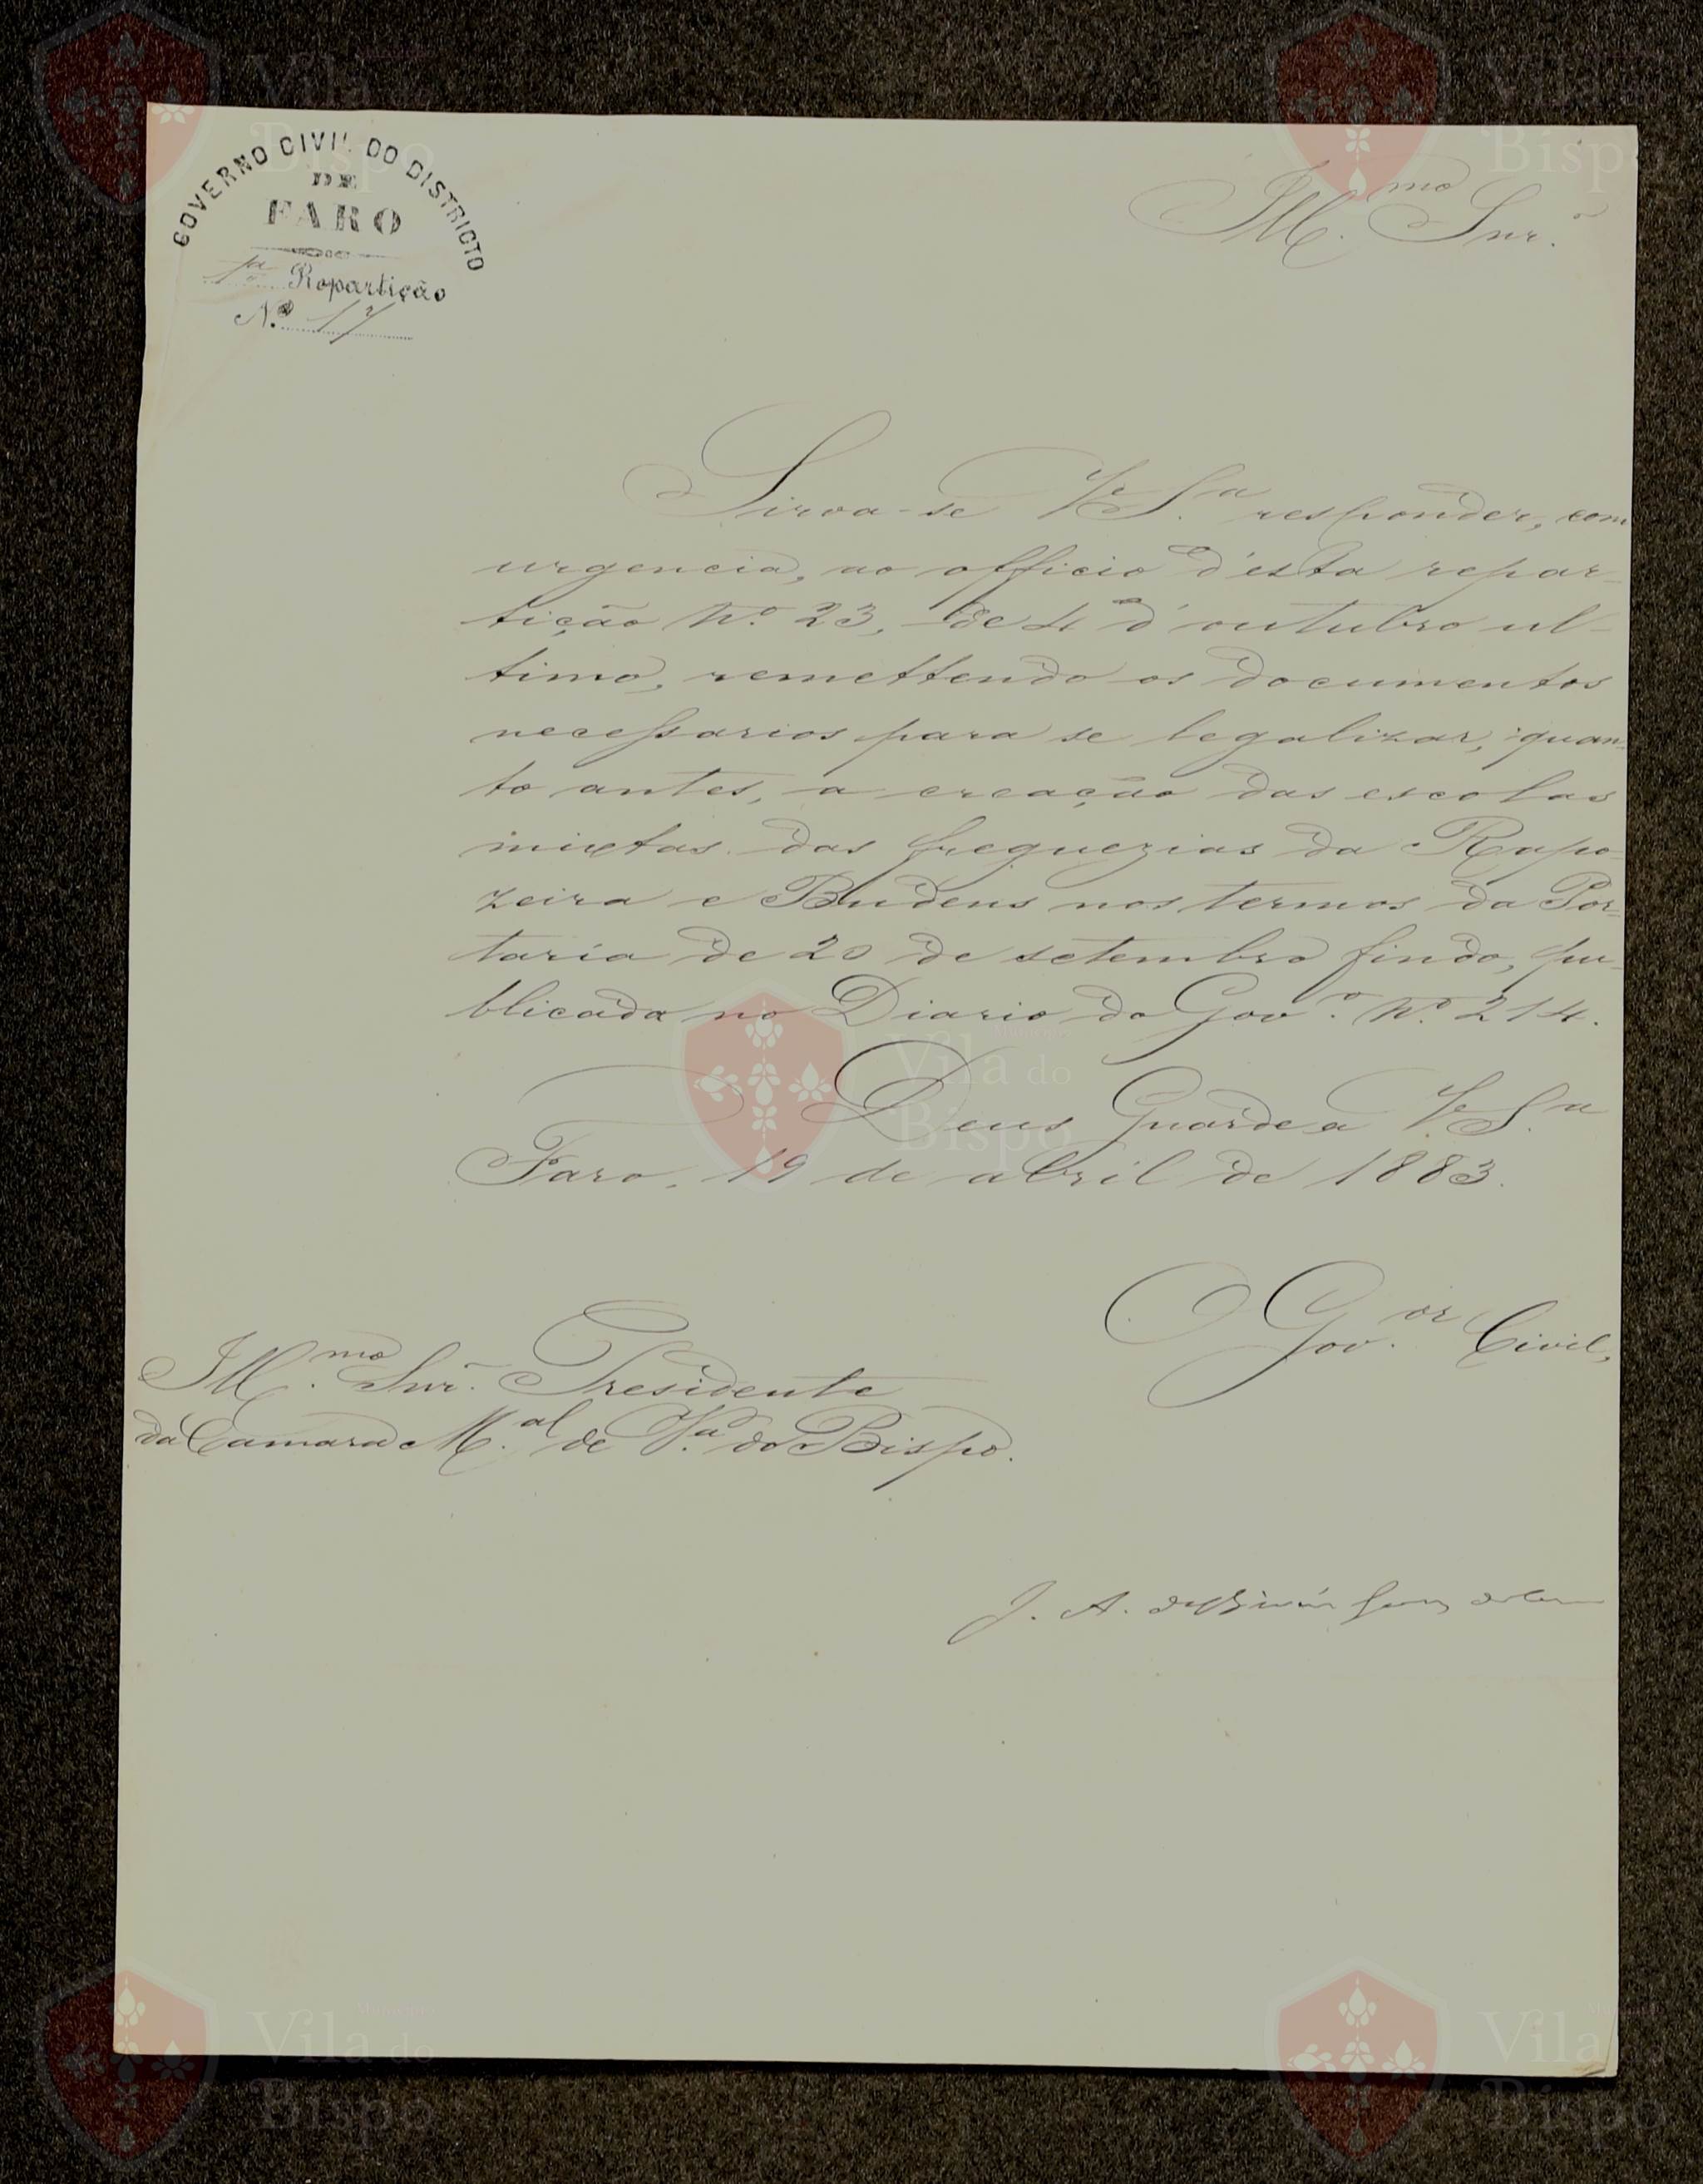 GOVERNO CIVIL DO DISTRICTO
DE
FARO
1ª Repartição
N.º 17
Ill.mo Snr.
Sirva-se V. S.ª responder, com
urgencia, ao officio d'esta repar-
tição N.º 23, de 4 d'outubro ul-
timo, remettendo os documentos
necessarios para se legalizar, quan-
to antes, a creação das escolas
mixtas das freguezias da Rapo-
zeira e Budens nos termos da Por-
taria de 20 de setembro findo, pu-
blicada no Diario do Gov.º N.º 214.
Deus Guarde a V. S.ª
Faro, 19 de abril de 1883.
O Gov.or Civil,
Ill.mo Snr. Presidente
da Camara M.al de V.ª do Bispo.
J. A.
Município
Vila do
Bispo